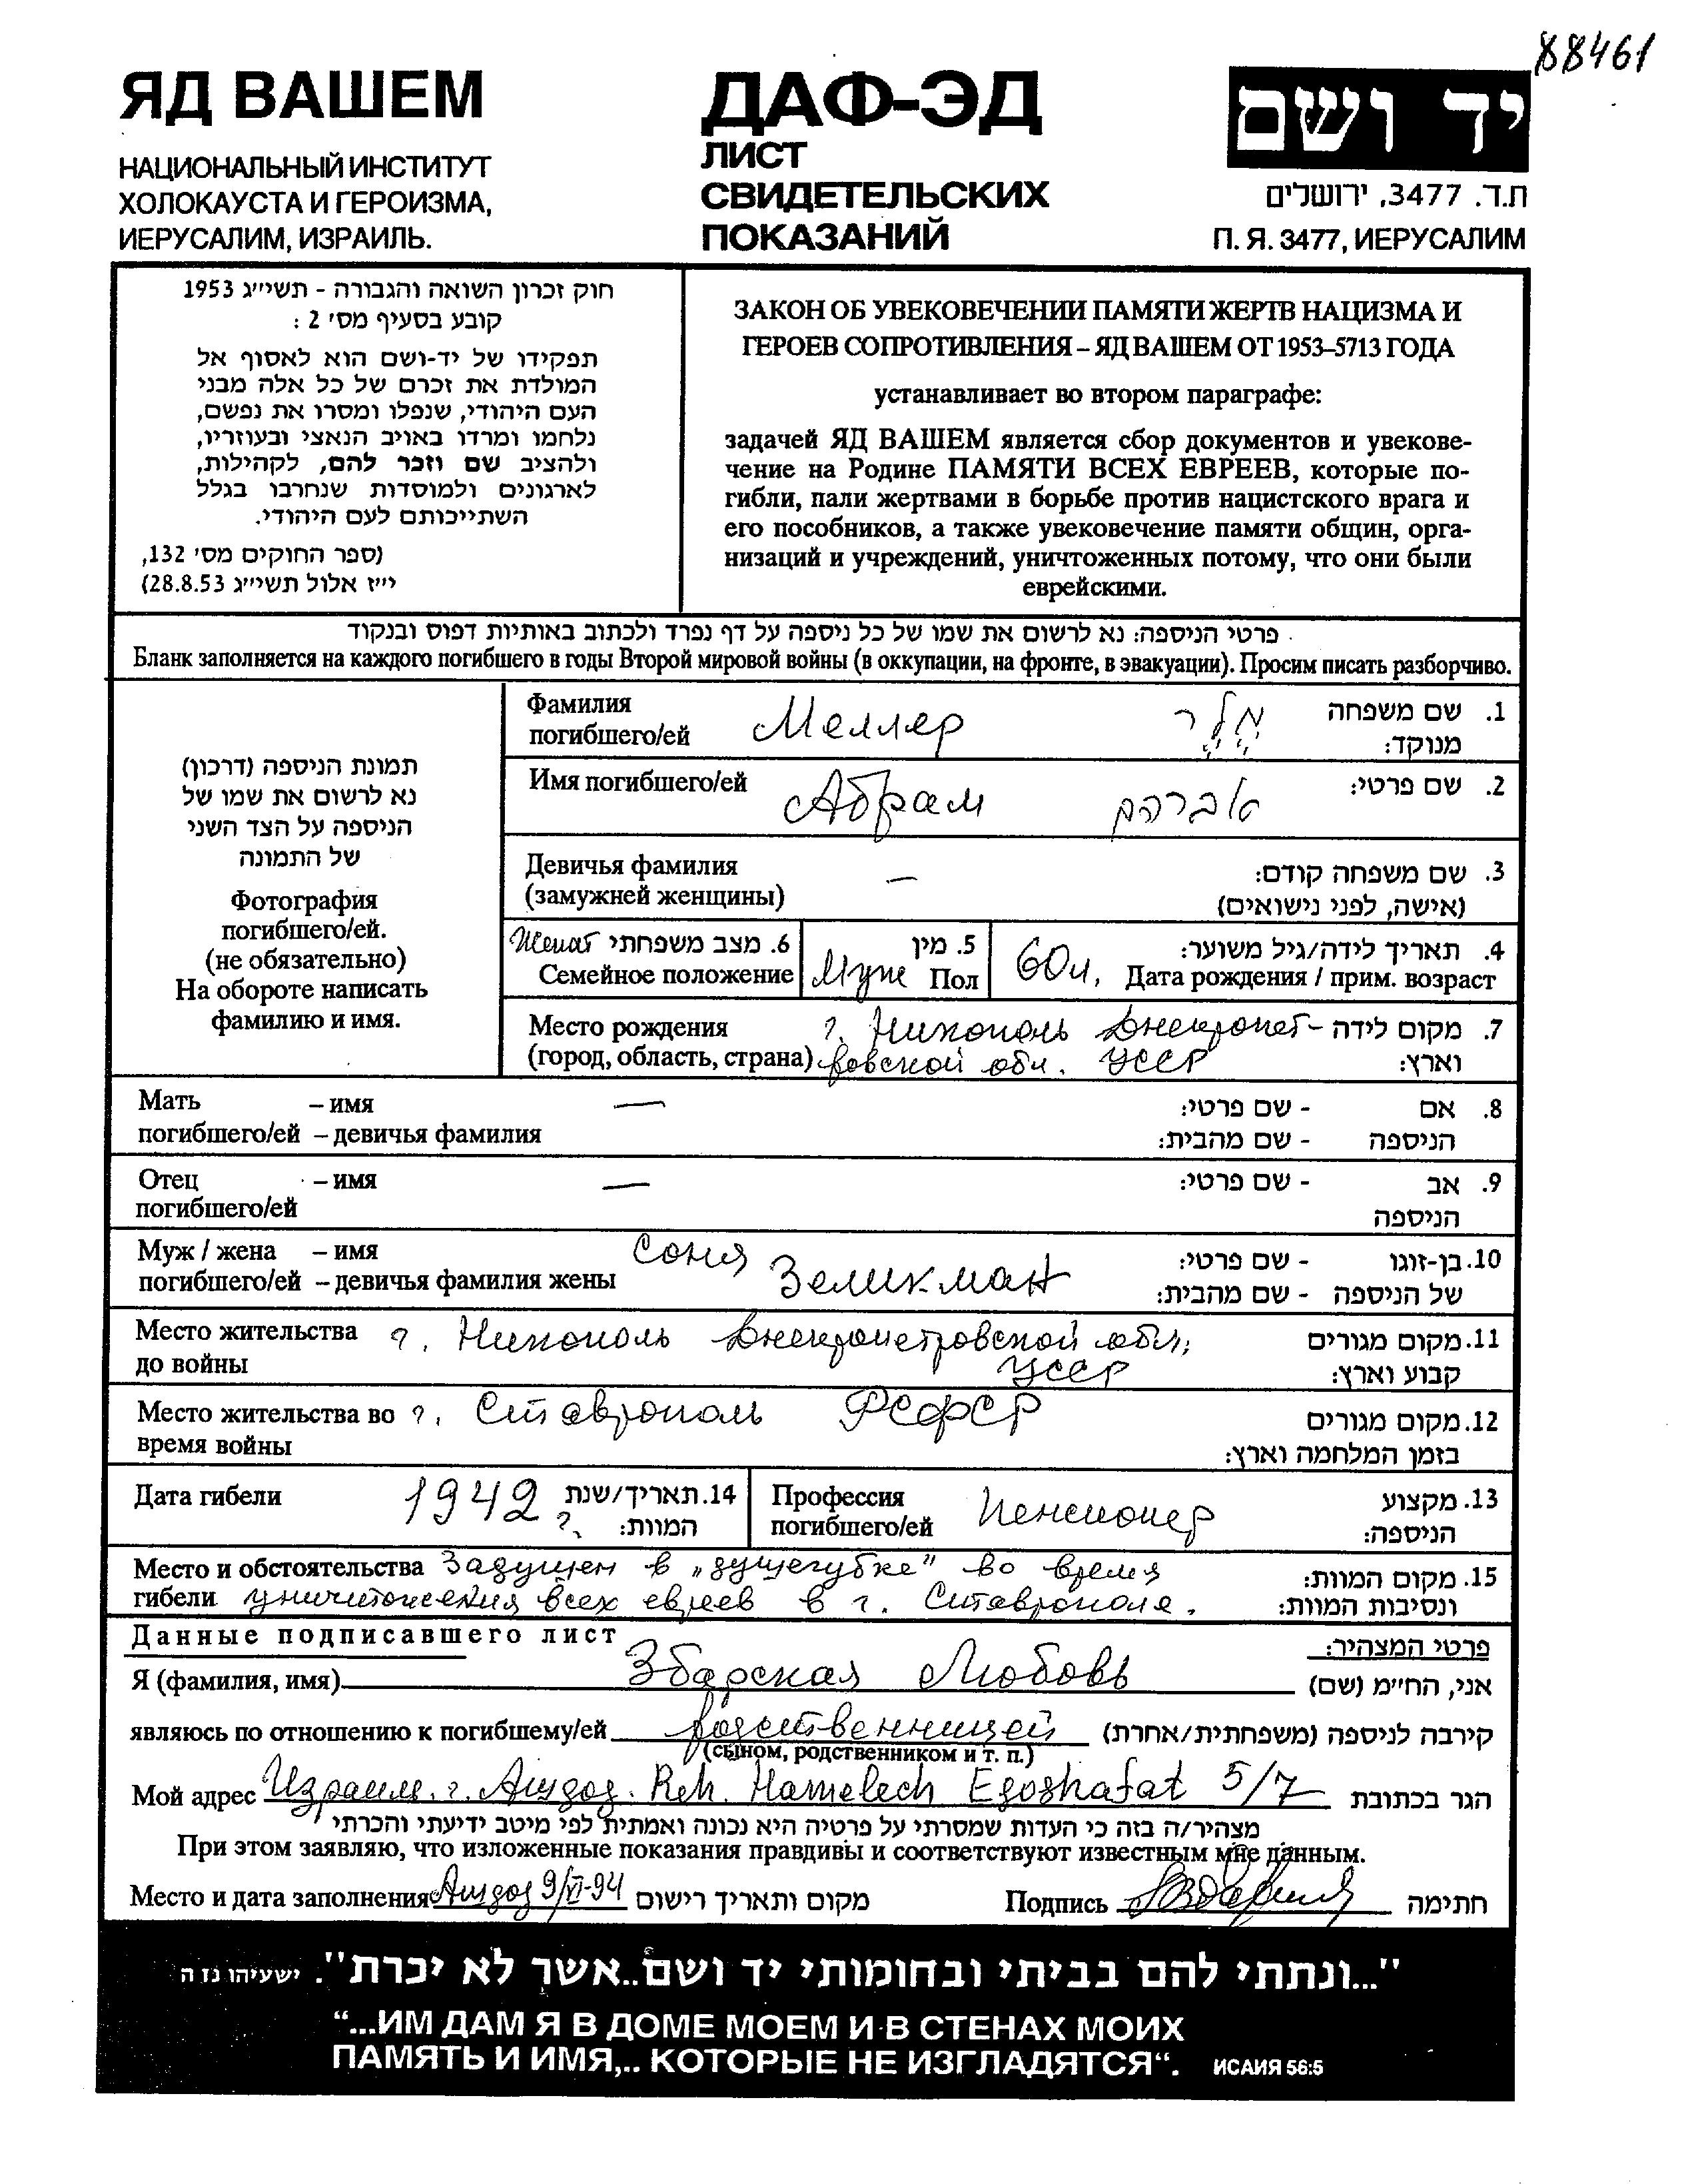 88461
ЯД ВАШЕМ
НАЦИОНАЛЬНЫЙ ИНСТИТУТ
ХОЛОКАУСТА И ГЕРОИЗМА,
ИЕРУСАЛИМ, ИЗРАИЛЬ.
ДАФ-ЭД
ЛИСТ
СВИДЕТЕЛЬСКИХ
ПОКАЗАНИЙ
יד ושם
ת.ד. 3477, ירושלים
П. Я. 3477, ИЕРУСАЛИМ
חוק זכרון השואה והגבורה - תשי״ג 1953
קובע בסעיף מס׳ 2 :
תפקידו של יד-ושם הוא לאסוף אל
המולדת את זכרם של כל אלה מבני
העם היהודי, שנפלו ומסרו את נפשם,
נלחמו ומרדו באויב הנאצי ובעוזריו,
ולהציב שם וזכר להם, לקהילות,
לארגונים ולמוסדות שנחרבו בגלל
השתייכותם לעם היהודי.
(ספר החוקים מס׳ 132,
י״ז אלול תשי״ג 28.8.53)
ЗАКОН ОБ УВЕКОВЕЧЕНИИ ПАМЯТИ ЖЕРТВ НАЦИЗМА И
ГЕРОЕВ СОПРОТИВЛЕНИЯ – ЯД ВАШЕМ ОТ 1953–5713 ГОДА
устанавливает во втором параграфе:
задачей ЯД ВАШЕМ является сбор документов и увекове-
чение на Родине ПАМЯТИ ВСЕХ ЕВРЕЕВ, которые по-
гибли, пали жертвами в борьбе против нацистского врага и
его пособников, а также увековечение памяти общин, орга-
низаций и учреждений, уничтоженных потому, что они были
еврейскими.
פרטי הניספה: נא לרשום את שמו של כל ניספה על דף נפרד ולכתוב באותיות דפוס ובנקוד
Бланк заполняется на каждого погибшего в годы Второй мировой войны (в оккупации, на фронте, в эвакуации). Просим писать разборчиво.
תמונת הניספה (דרכון)
נא לרשום את שמו של
הניספה על הצד השני
של התמונה
Фотография
погибшего/ей.
(не обязательно)
На обороте написать
фамилию и имя.
Фамилия Меллер מֶלֶר 1. שם משפחה
погибшего/ей מנוקד:
Имя погибшего/ей Абрам אברהם 2. שם פרטי:
Девичья фамилия — 3. שם משפחה קודם:
(замужней женщины) (אישה, לפני נישואים)
Женат 6. מצב משפחתי
Семейное положение
5. מין
Муж Пол
4. תאריך לידה/גיל משוער:
60 л, Дата рождения / прим. возраст
Место рождения г. Никополь Днепропет- 7. מקום לידה
(город, область, страна) ровской обл. УССР וארץ:
Мать – имя — 8. אם - שם פרטי:
погибшего/ей – девичья фамилия הניספה - שם מהבית:
Отец – имя — 9. אב - שם פרטי:
погибшего/ей הניספה
Муж / жена – имя Соня 10. בן-זוגו - שם פרטי:
погибшего/ей – девичья фамилия жены Зеликман של הניספה - שם מהבית:
Место жительства г. Никополь Днепропетровской обл, 11. מקום מגורים
до войны УССР קבוע וארץ:
Место жительства во г. Ставрополь РСФСР 12. מקום מגורים
время войны בזמן המלחמה וארץ:
Дата гибели 1942 г. 14. תאריך/שנת
המוות:
Профессия Пенсионер 13. מקצוע
погибшего/ей הניספה:
Место и обстоятельства Задушен в „душегубке" во время 15. מקום המוות:
гибели уничтожения всех евреев в г. Ставрополя. ונסיבות המוות:
Данные подписавшего лист פרטי המצהיר:
Я (фамилия, имя) Збарская Любовь אני, הח״מ (שם)
являюсь по отношению к погибшему/ей родственницей קירבה לניספה (משפחתית/אחרת)
(сыном, родственником и т. п.)
Мой адрес Израиль. г. Ашдод. Reh. Hamelech Egoshafat 5/7 הגר בכתובת
מצהיר/ה בזה כי העדות שמסרתי על פרטיה היא נכונה ואמתית לפי מיטב ידיעתי והכרתי
При этом заявляю, что изложенные показания правдивы и соответствуют известным мне данным.
Место и дата заполнения Ашдод 9/VI-94 מקום ותאריך רישום Подпись חתימה
"...ונתתי להם בביתי ובחומותי יד ושם..אשר לא יכרת". ישעיהו נו ה
“...ИМ ДАМ Я В ДОМЕ МОЕМ И В СТЕНАХ МОИХ
ПАМЯТЬ И ИМЯ,.. КОТОРЫЕ НЕ ИЗГЛАДЯТСЯ“. ИСАИЯ 56:5